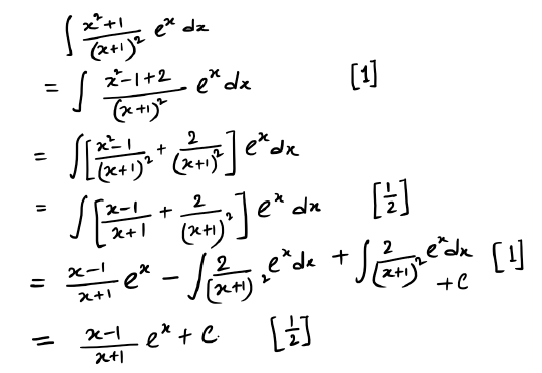 ∫ (x²+1)/(x+1)² eˣ dx
= ∫ (x²-1+2)/(x+1)² eˣ dx [1]
= ∫[(x²-1)/(x+1)² + 2/(x+1)²] eˣ dx
= ∫[(x-1)/(x+1) + 2/(x+1)²] eˣ dx [1/2]
= (x-1)/(x+1) eˣ - ∫ 2/(x+1)² eˣ dx + ∫ 2/(x+1)² eˣ dx + C [1]
= (x-1)/(x+1) eˣ + C [1/2]